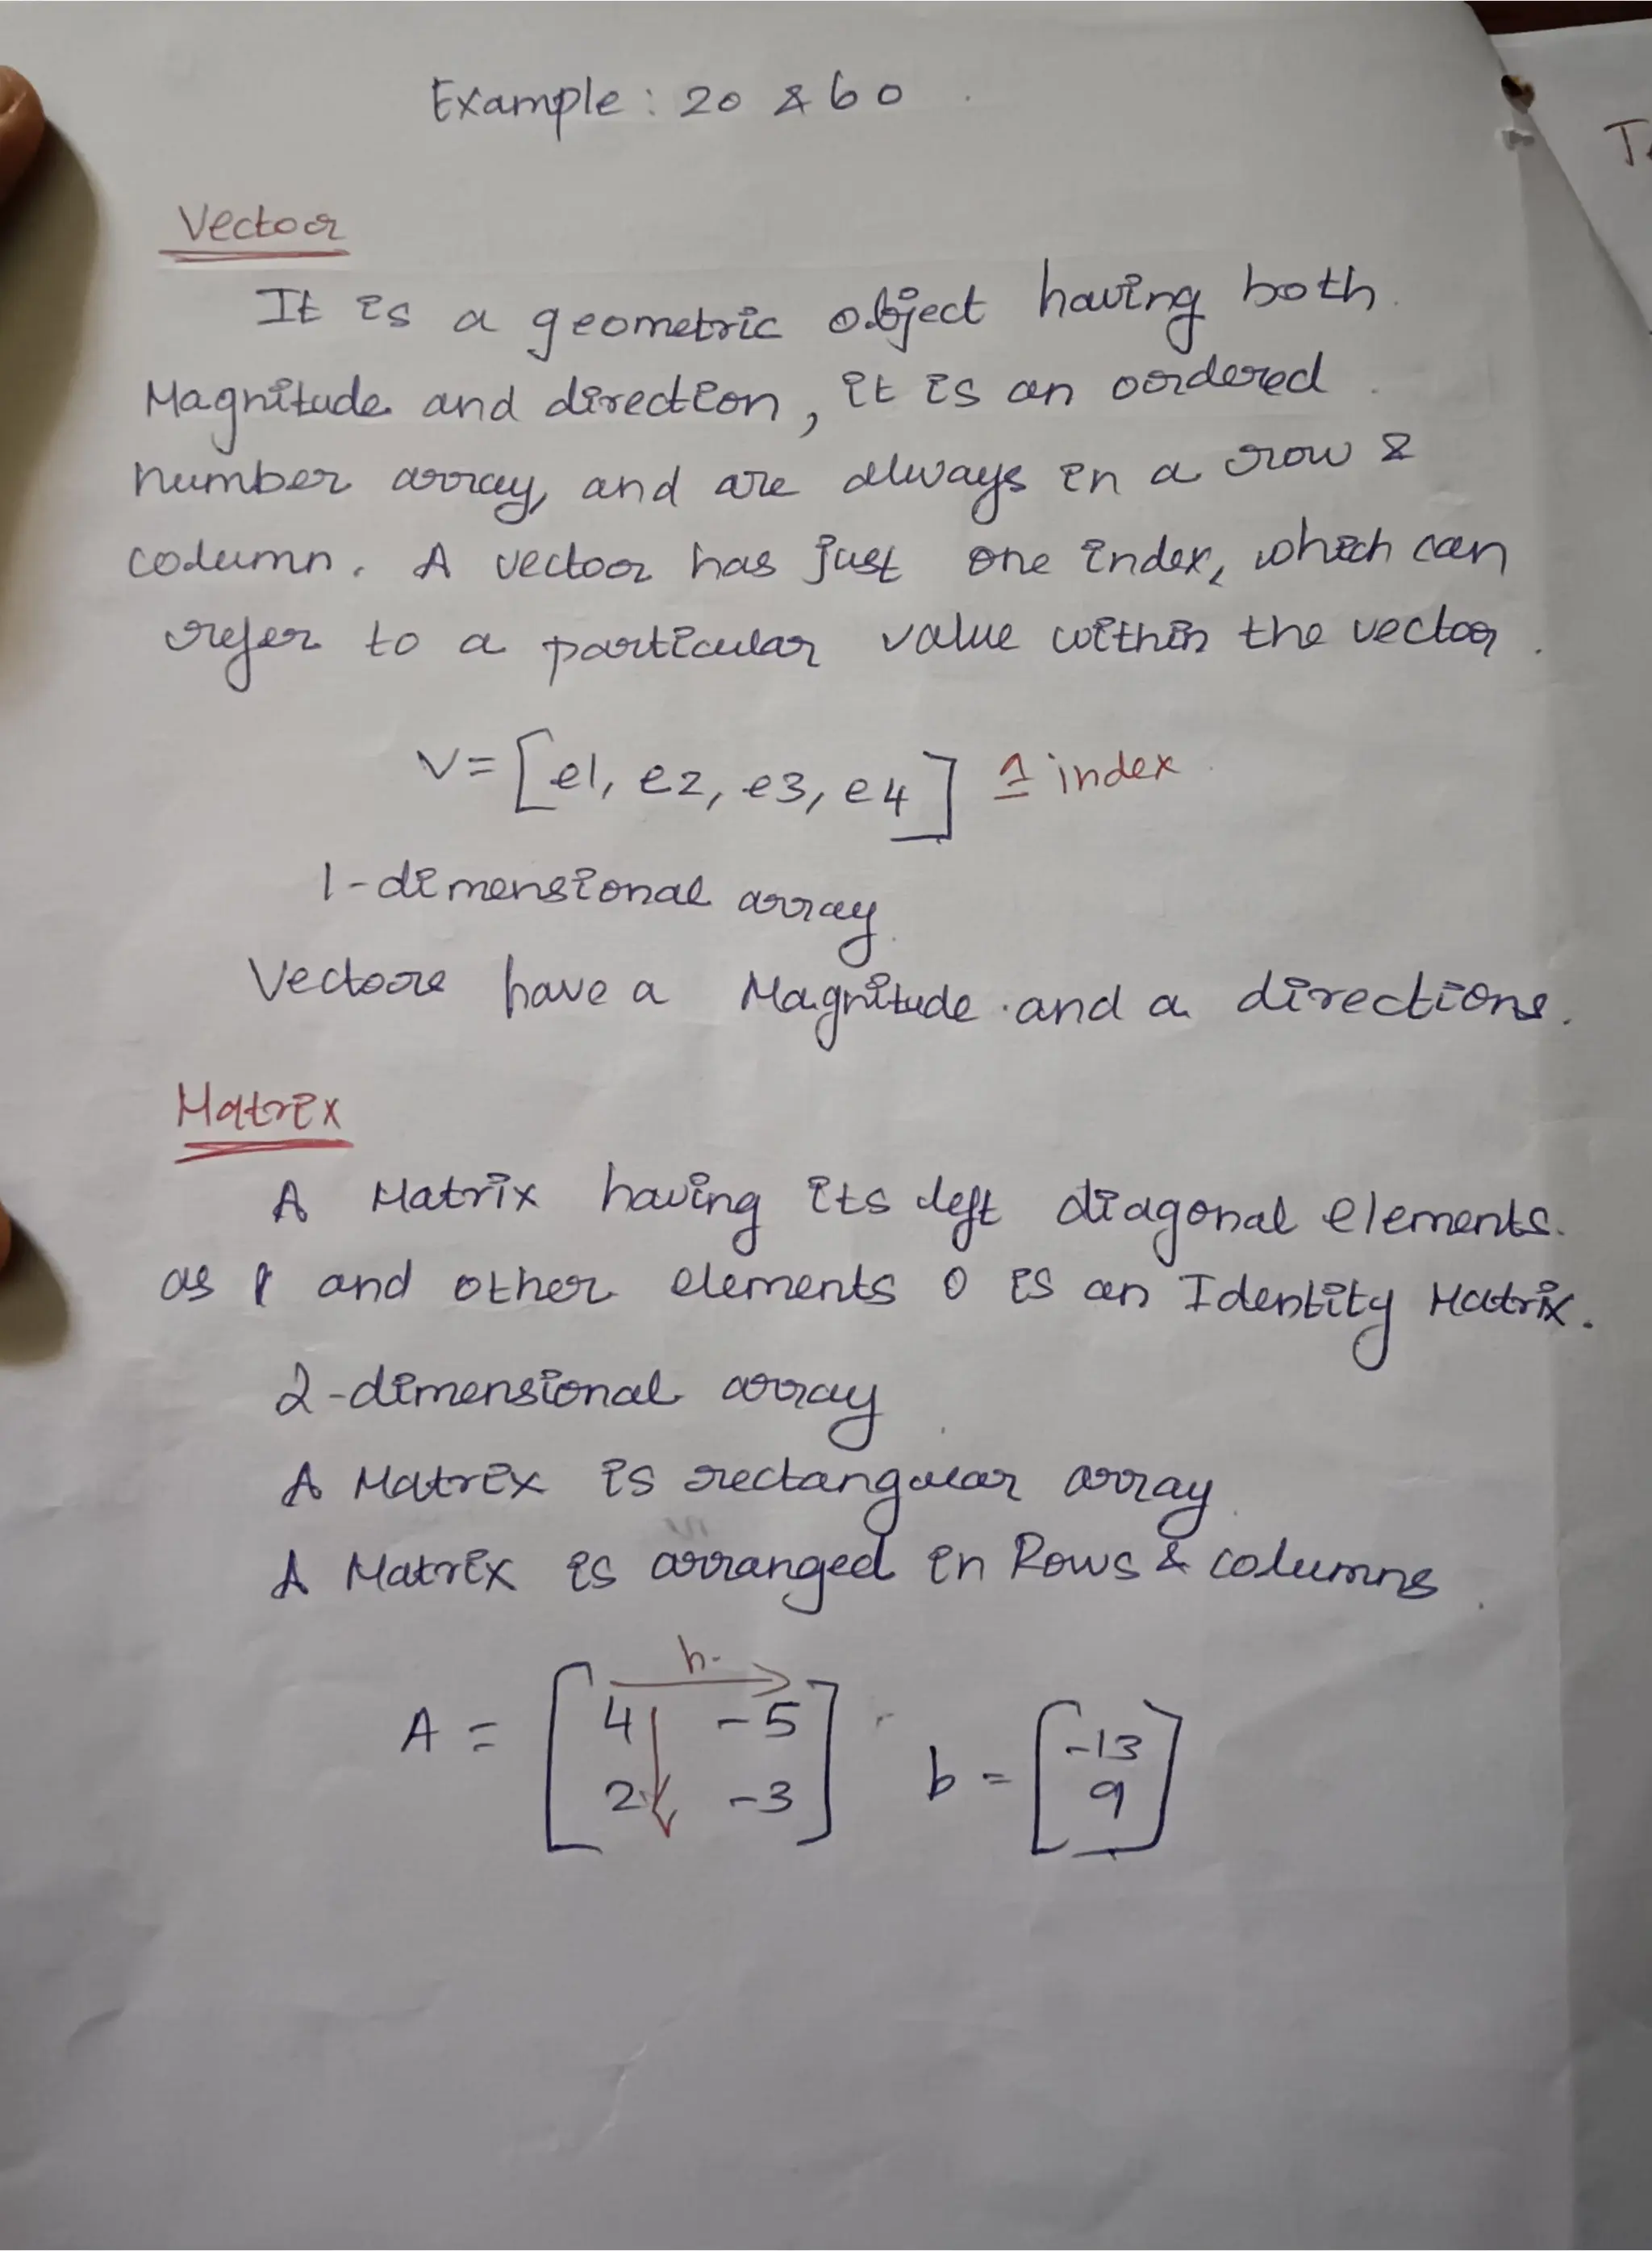 Example : 20 & 60
Vector
It is a geometric object having both
Magnitude and direction, it is an ordered
number array, and are always in a row &
column. A vector has just one index, which can
refer to a particular value within the vector.
V = [e1, e2, e3, e4] 1 index
1-dimensional array
Vectors have a Magnitude and a directions.
Matrix
A Matrix having its left diagonal elements.
as 1 and other elements 0 is an Identity Matrix.
2-dimensional array
A Matrix is rectangular array
A Matrix is arranged in Rows & columns.
h.
A = [4 -5 b = [-13
2 -3] 9]